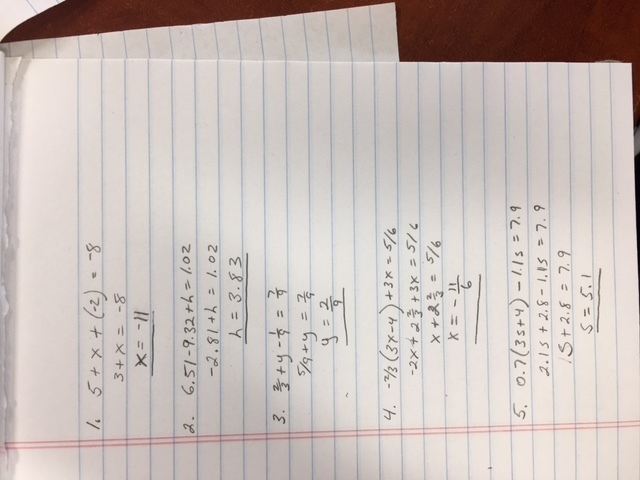 1. 5 + x + (-2) = -8
3 + x = -8
x = -11
2. 6.51 - 9.32 + h = 1.02
-2.81 + h = 1.02
h = 3.83
3. 2/3 + y - 1/9 = 7/9
5/9 + y = 7/9
y = 2/9
4. -2/3 (3x - 4) + 3x = 5/6
-2x + 2 2/3 + 3x = 5/6
x + 2 2/3 = 5/6
x = - 11/6
5. 0.7(3s+4) - 1.1s = 7.9
2.1s + 2.8 - 1.1s = 7.9
1s + 2.8 = 7.9
s = 5.1